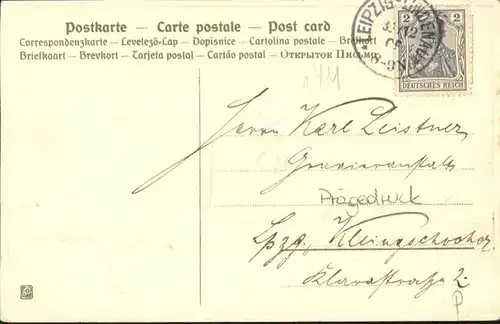 Postkarte – Carte postale – Post card
Correspondenzkarte – Levelező-Lap – Dopisnice – Cartolina postale – Brefkort
Briefkaart – Brevkort – Tarjeta postal – Cartão postal – Открытое Письмо
2 2
DEUTSCHES REICH
Herrn Karl Leistner
Gravieranstalt
Prägedruck
Lpzg. Kleinzschocher
Klarastraße 2
P